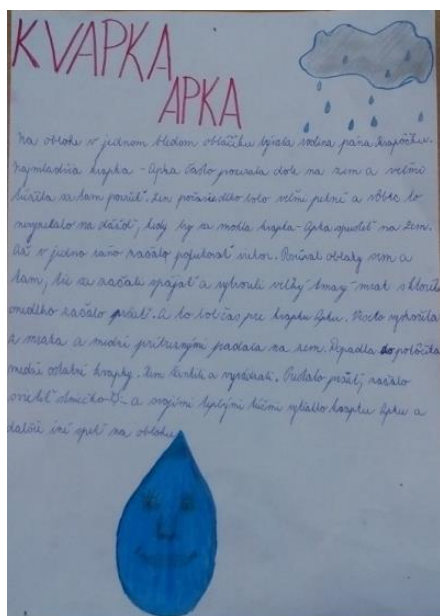 KVAPKA
APKA
Na oblohe v jednom bledom obláčiku bývala rodina pána Kvapôčku.
Najmladšia kvapka - Apka často pozerala dole na zem a veľmi
túžila sa tam pozrieť. Len počasie bolo veľmi pekné a vôbec to
nevyzeralo na dážď, kedy by sa mohla kvapka - Apka spustiť na Zem.
Až v jedno ráno začalo pofukovať vietor. Posúval oblaky sem a
tam, tie sa začali spájať a vytvorili veľký tmavý mrak z ktorého
onedlho začalo pršať. A to bol čas pre kvapku Apku. Rýchlo vyskočila
z mraku a medzi prvými padala na zem. Dopadla do potôčika
medzi ostatné kvapky. Prestalo pršať, začalo
svietiť slniečko a svojimi teplými lúčmi vytiahlo kvapku Apku a
ďalšie iné späť na oblohu.